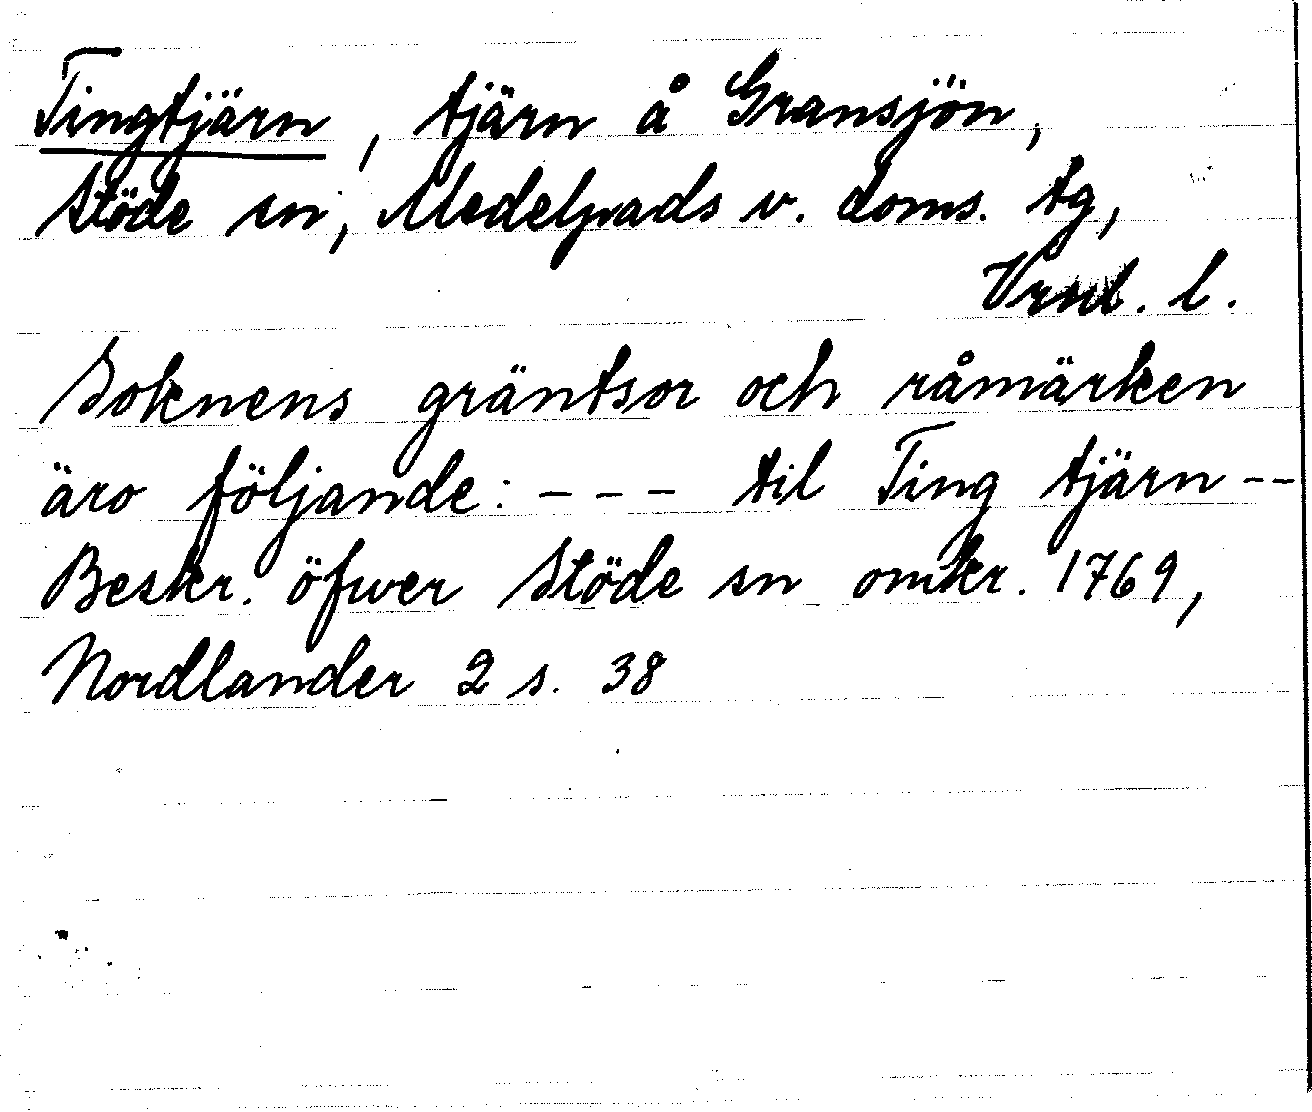 Tingtjärn, tjärn å Gransjön,
Stöde sn, Medelpads v. doms. tg,
Vrnl. l.
Soknens gräntsor och råmärken
äro följande: - - - til Ting tjärn --
Beskr. öfwer Stöde sn omkr. 1769,
Nordlander 2 s. 38